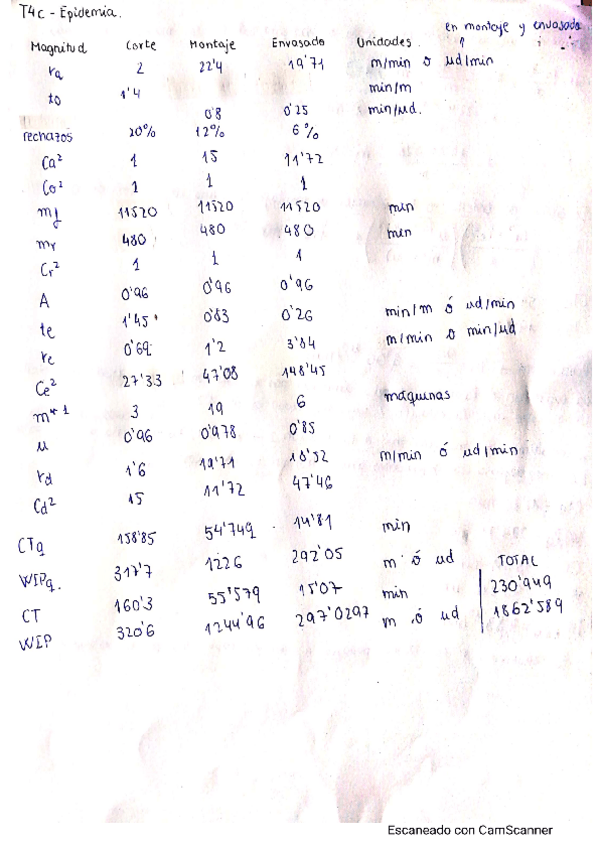 T4c - Epidemia.
en montaje y envasado
Magnitud Corte Montaje Envasado Unidades ↑
ra 2 22'4 19'71 m/min ó ud/min
to 1'4 min/m
0'8 0'25 min/ud.
rechazos 20% 12% 6%
Ca² 1 15 11'72
Co² 1 1 1
mf 11520 11520 11520 min
mr 480 480 480 min
Cr² 1 1 1
A 0'96 0'96 0'96
te 1'45 0'83 0'26 min/m ó ud/min
re 0'69 1'2 3'84 m/min o min/ud
Ce² 27'33 47'08 148'45
m*1 3 19 6 máquinas
u 0'96 0'978 0'85
rd 1'6 19'71 18'52 m/min ó ud/min
Cd² 15 11'72 47'46
CTq 158'85 54'749 14'81 min
WIPq. 317'7 1226 292'05 m ó ud TOTAL
CT 160'3 55'579 15'07 min 230'949
WIP 320'6 1244'96 297'0297 m ó ud 1862'589
Escaneado con CamScanner